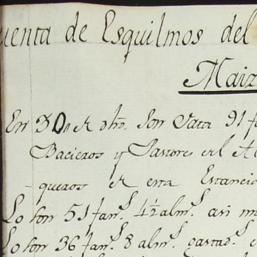 uenta de Esquilmos del
Maiz
En 30 de dho. son Data 91 f
Bacieros y Pastores del A
queros de esta Estancia
Lo son 51 fan.s 4½ alm.s asi m
Lo son 36 fan.s 8 alm.s gastad.s e